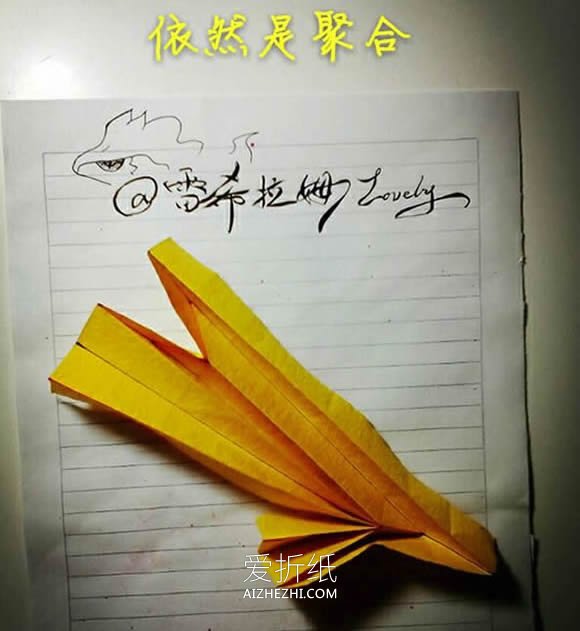 依然是聚合
@雷希拉姆 Lovely
爱折纸
AIZHEZHI.COM